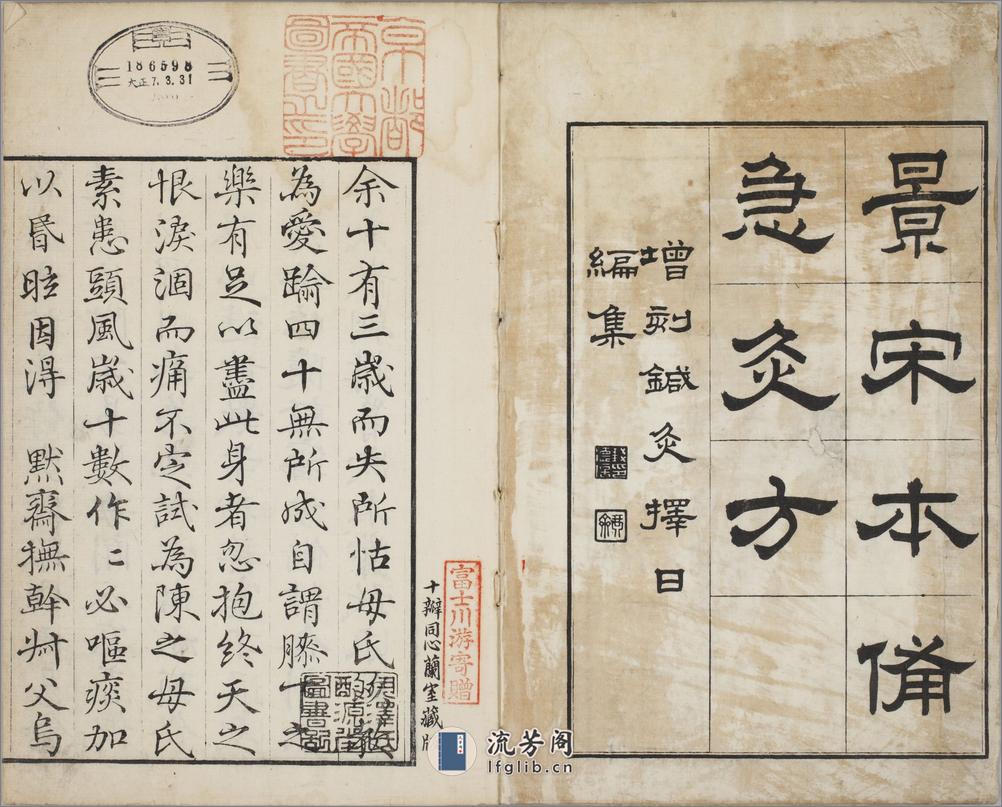 景宋本備
急灸方
增刻鍼灸擇日
編集
京都
帝國大學
圖書之印
186598
大正7.3.31
富士川游寄贈
十瓣同心蘭室藏版
余十有三歲而失所怙母氏
為愛踰四十無所成自謂膝下之
樂有足以盡此身者忽抱終天之
恨淚涸而痛不定試為陳之母氏
素患頭風歲十數作作必嘔痰加
以昬眩因得 默齋撫幹艸父烏
流芳阁
lfglib.cn